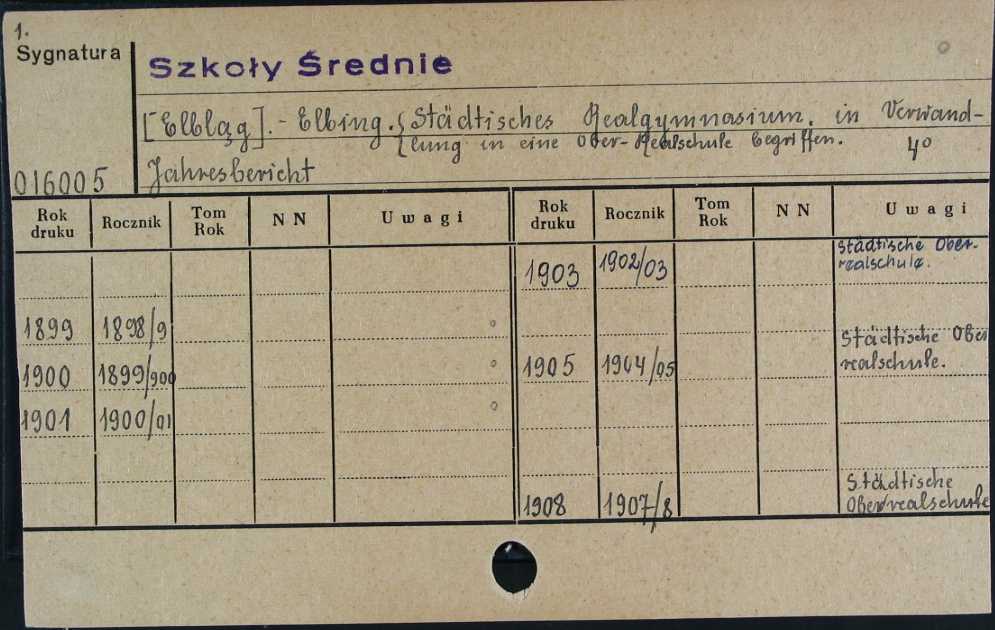 1.
Sygnatura
Szkoły Średnie
[Elbląg].- Elbing. {Städtisches Realgymnasium. in Verwand-
lung in eine Ober-Realschule begriffen. 4°
016005 Jahresbericht
Rok druku Rocznik Tom Rok NN Uwagi Rok druku Rocznik Tom Rok NN Uwagi
1903 1902/03 Städtische Ober-
realschule.
1899 1898/9
1900 1899/900 1905 1904/05 Städtische Ober
realschule.
1901 1900/01
1908 1907/8 Städtische
Oberrealschule